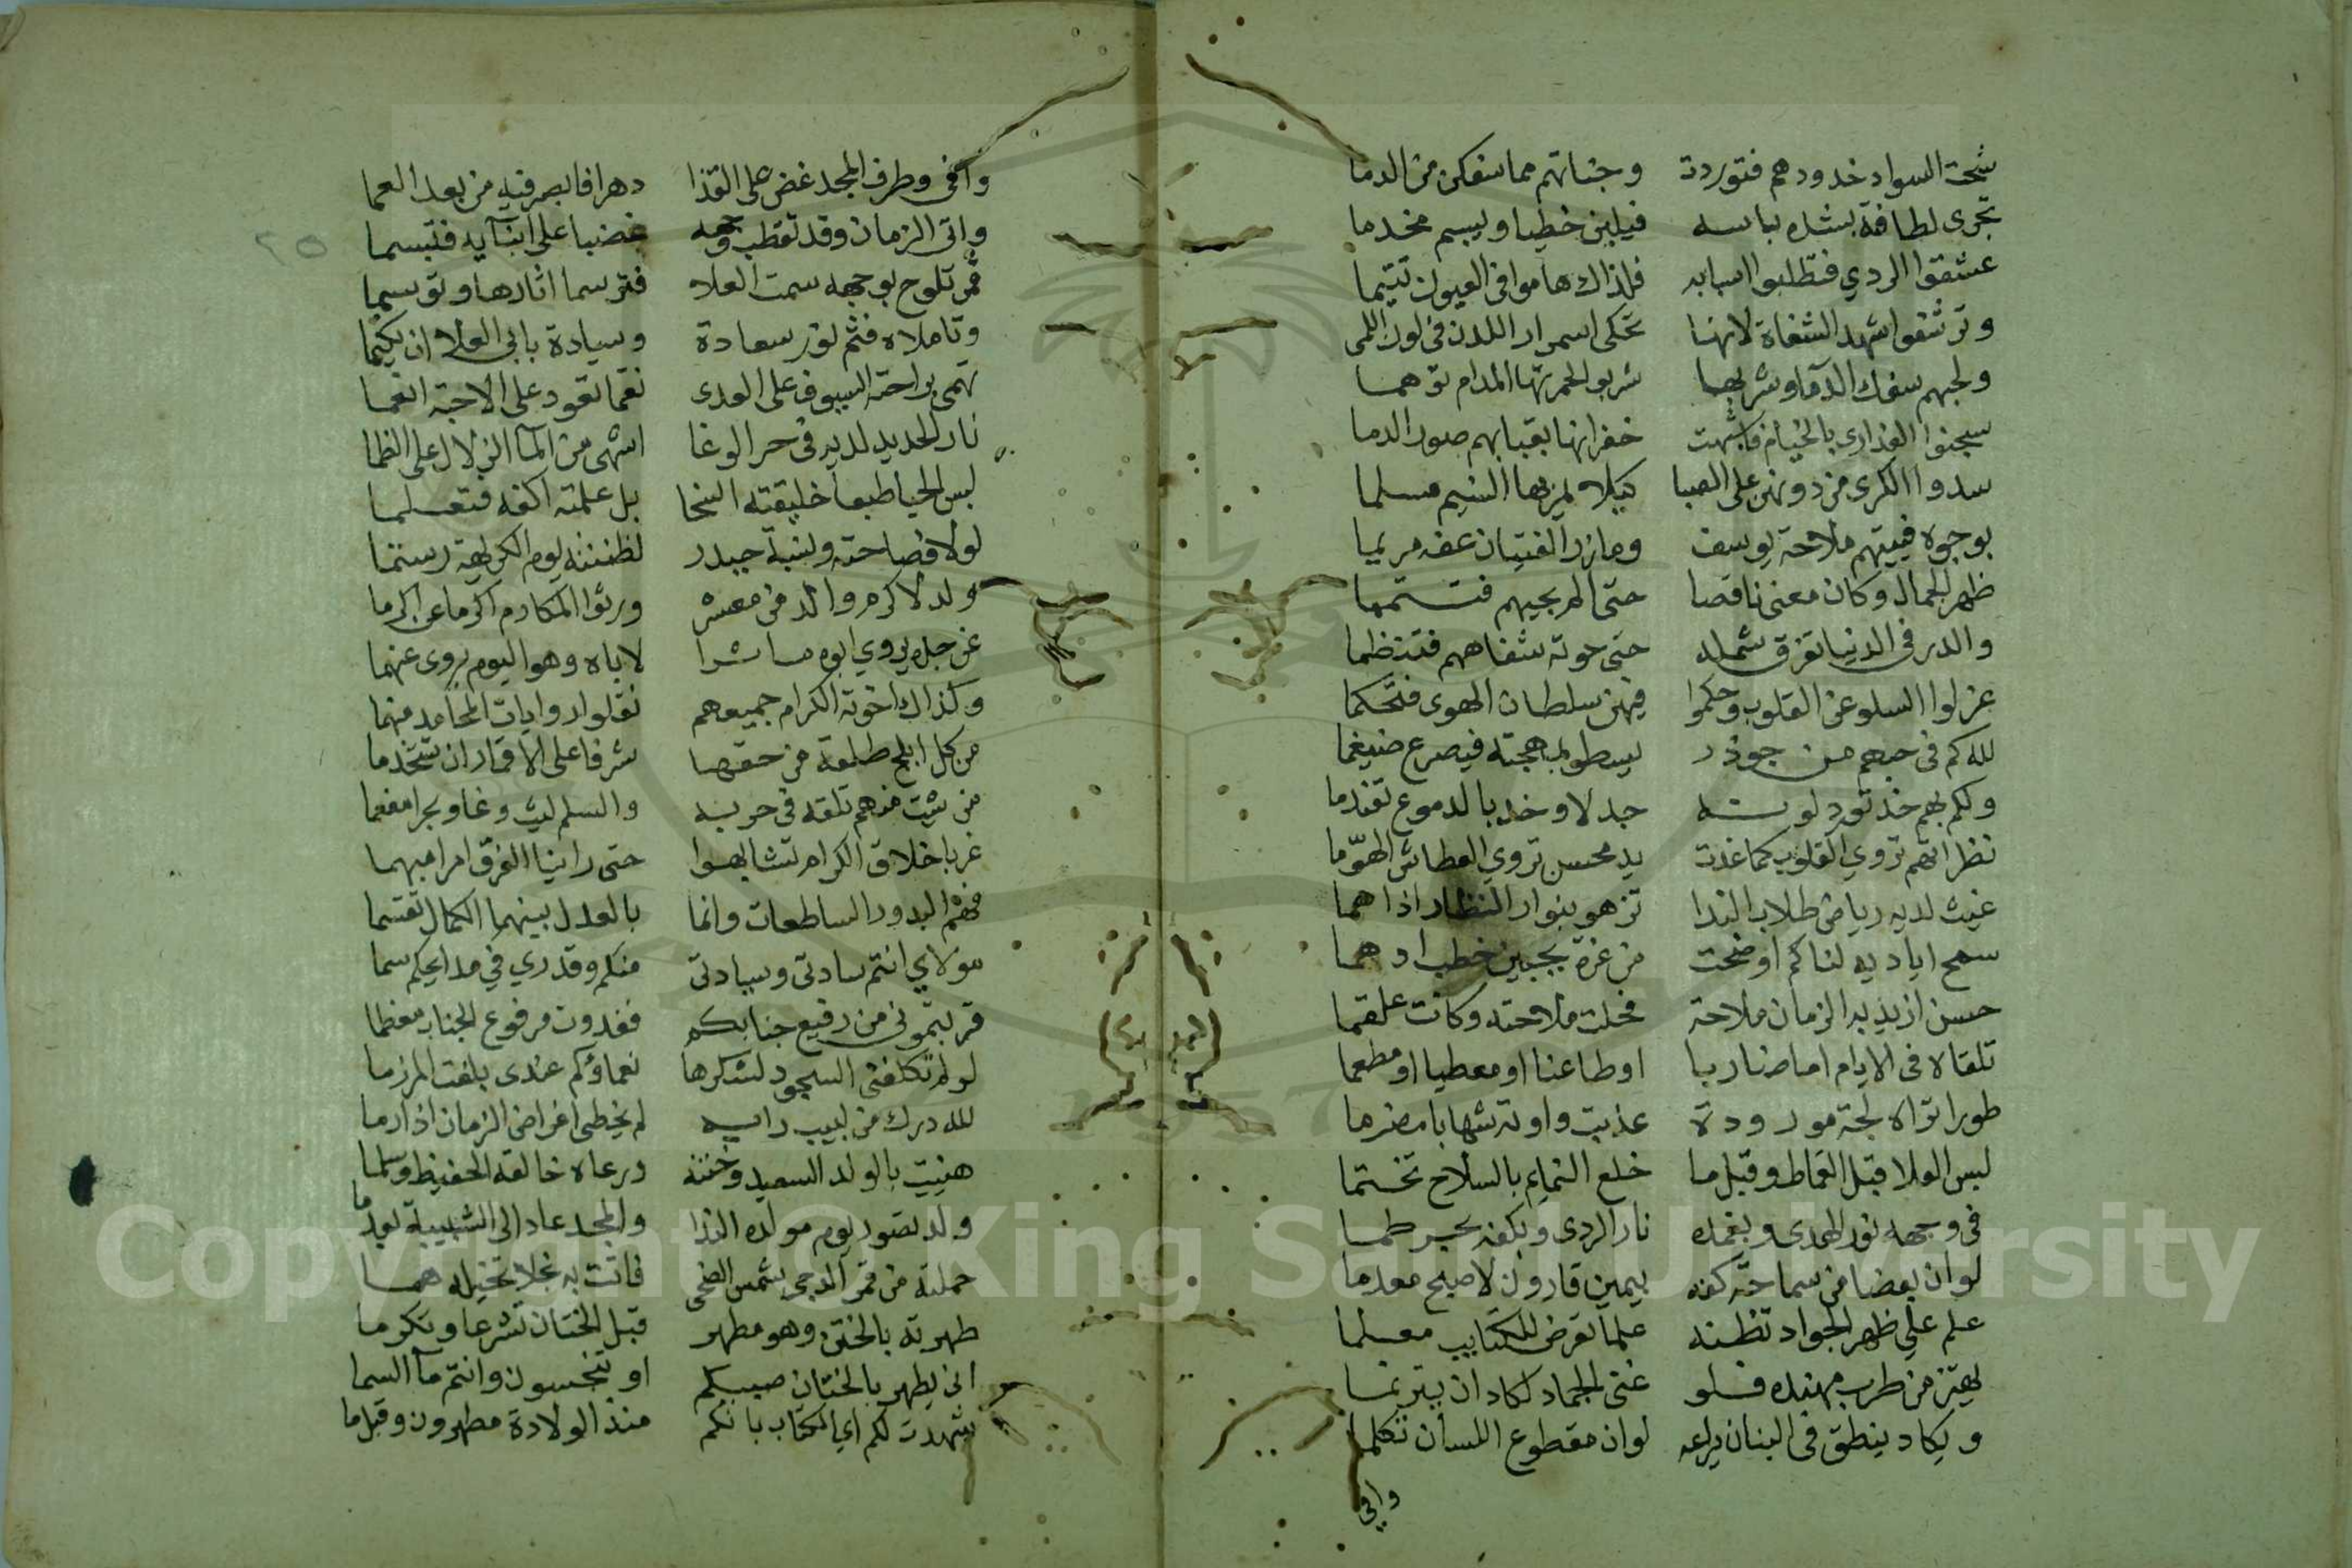 شحت السواد خدودهم فتوردت وجناتهم مما سفكن من الدما
تجرى لطافة بشده باسه فيلين خطيا ويبسم مخدما
عشقوا الردي فتطلبوا اسبابه فلذاك هاموا فى العيون تتيما
وترشفوا شهد الشفاة لانها تحكى اسمرار اللدن فى لون اللمى
ولحبهم سفك الدما وشربها شربوا لحمرتها المدام توهما
سجنوا العذارى بالخيام فاشبهت خفراتها بقبابهم صور الدما
سدوا الكرى من دونهن على الصبا كيلا يمر بها النسيم مسلما
بوجوه فتيتهم ملاحة يوسف ومازر الفتيان عفه مريما
ظهر الجمال وكان معنى ناقصا حتى الم بحيهم فتتمما
والدر فى الدنيا تفرق شمله حتى حوته شفاههم فتنظما
عزلوا السلو عن القلوب وحكموا فيهن سلطان الهوى فتحكما
لله كم فى حبهم من جوذر يسطو بمهجته فيصرع ضيغما
ولكم بهم خد تورد لونه جدلا وخد بالدموع تعندما
نظراتهم تروي القلوب كما غدت يد محسن تروي العطاش الهوّما
غيث لديه رياض طلاب الندا تزهو بنوار النظار اذا هما
سمح اياديه لنا كم اوضحت من غرة بجبين خطب ادهما
حسن ازيد به الزمان ملاحة فحلت ملاحته وكانت علقما
تلقاه فى الايام اما ضاربا اوطاعنا او معطيا او مطعما
طورا تراه لجة مورودة عذبت واونة شهابا مضرما
لبس العلا قبل القماط وقبل ما خلع التمايم بالسلاح تختما
فى وجهه نور الهدى وبغمده نار الردى وبكفه بحر طما
لو ان بعضا من سماحة كفه بيمين قارون لاصبح معدما
علم على ظهر الجواد تظنه علما تعرض للكتايب معلما
يهتز من طرب مهنده فلو غنى الجماد لكاد ان يترنما
ويكاد ينطق فى البنان يراعه لو ان مقطوع اللسان تكلما
وافى
وافى وطرف المجد غض على القذا دهرا فابصر فيه من بعد العما
واتى الزمان وقد تقطب وجهه غضبا على ابنآيه فتبسما
قمر تلوح بوجهه سمت العلا فترسما اثارها وتوسما
وتاملاه فثم نور سعادة وسيادة بابى العلا ان يكتما
تهمى براحته السيوف على العدى نقما تعود على الاحبة انعما
نار الحديد لديه فى حر الوغا اشهى من المآ الزلال على الظما
ليس الحيا طبعا خليقته السخا بل علمته اكفه فتعلما
لولا فصاحته ونسبة حيدر لظننته يوم الكريهة رستما
ولد لاكرم والد من معشر ورثوا المكارم اكرما عن اكرما
عن جده يروي ابوه ماشرا لاباه وهو اليوم يروى عنهما
وكذاك اخوته الكرام جميعهم نقلوا روايات المحامد منهما
من كل ابلج طلعة من حقها شرفا على الاقمار ان تتخدما
من شيت منهم تلقه فى حربه والسلم ليث وغا وبحرا مفعما
غر باخلاق الكرام تشابهوا حتى راينا الفرق امرا مبهما
فهم البدور الساطعات وانما بالعدل بينهما الكمال تقسما
مولاي انتم سادتى وسيادتى منكم وقدري في مدايحكم سما
قربتمونى من رفيع جنابكم فغدوت مرفوع الجناب معظما
لو لم تكلفنى السجود لشكرها نعماؤكم عندى بلغت المرزما
لله درك من لبيب رايه لم يخطى اغراض الزمان اذا رما
هنيت بالولد السعيد وختنه ورعاه خالقه الحفيظ وسلما
ولد تصور يوم مولده الندا والمجد عاد الى الشبيبة بعدما
حملته من قمر الدجى شمس الضحى فاتت به نجلا تخيله هما
طهرته بالختن وهو مطهر قبل الختان تشرعا وتكرما
انى يطهر بالختان صبيكم او تنجسون وانتم مآ السما
شهدت لكم اي الكتاب بانكم منذ الولادة مطهرون وقبل ما
٢٥
Copyright © King Saud University
1957